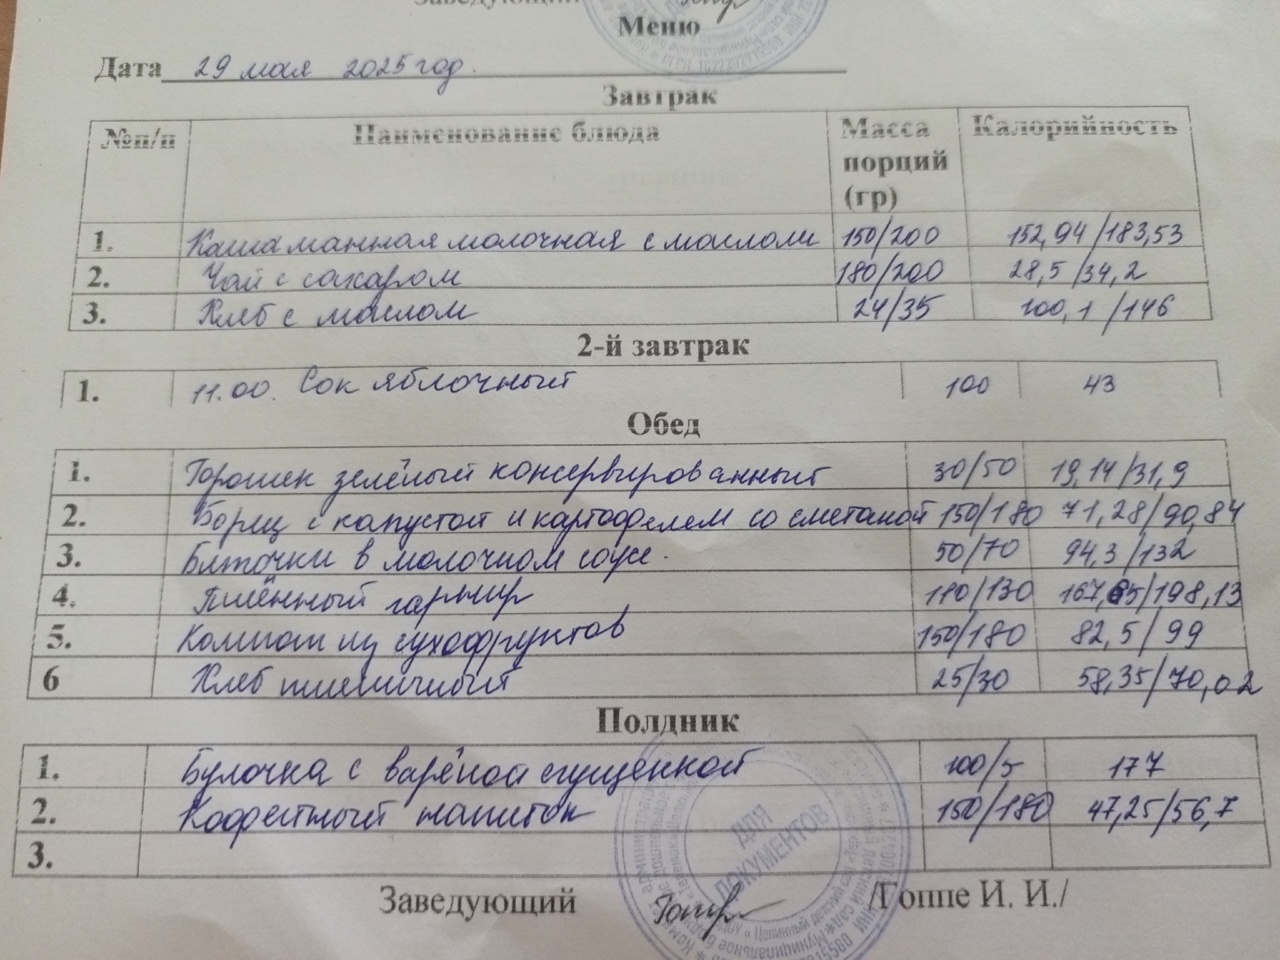 Заведующий
Меню
Дата 29 мая 2025 год.
Завтрак
№п/п Наименование блюда Масса порций (гр) Калорийность
1. Каша манная молочная с маслом 150/200 152,94/183,53
2. Чай с сахаром 180/200 28,5/34,2
3. Хлеб с маслом 24/35 100,1/146
2-й завтрак
1. 11.00. Сок яблочный 100 43
Обед
1. Горошек зелёный консервированный 30/50 19,14/31,9
2. Борщ с капустой и картофелем со сметаной 150/180 71,28/90,84
3. Биточки в молочном соусе. 50/70 94,3/132
4. Пшённый гарнир 110/130 167,65/198,13
5. Компот из сухофруктов 150/180 82,5/99
6 Хлеб пшеничный 25/30 58,35/70,02
Полдник
1. Булочка с варёной сгущенкой 100/5 177
2. Кофейный напиток 150/180 47,25/56,7
3.
Заведующий /Гоппе И. И./
ДЛЯ ДОКУМЕНТОВ